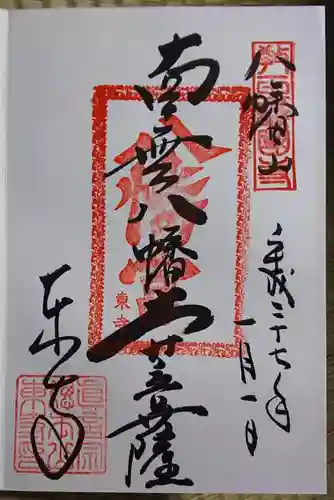 八幡山
南無八幡大菩薩
平成二十七年
一月一日
東寺
東寺